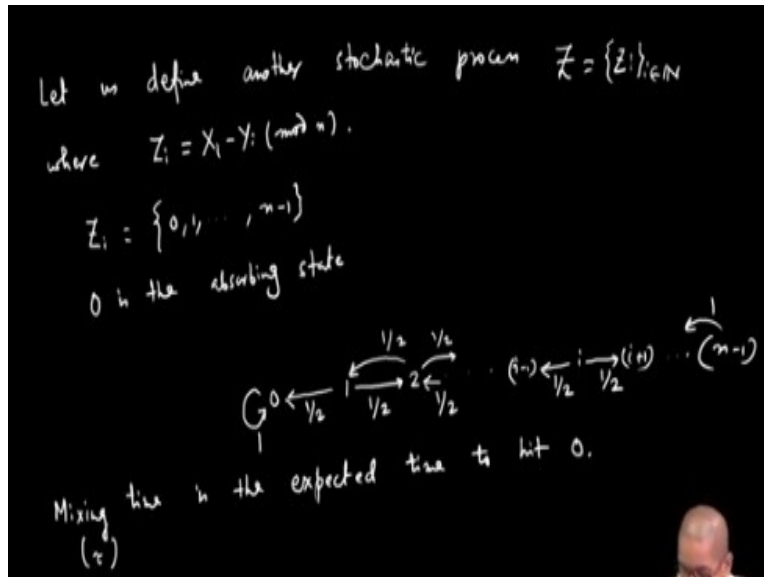 Let us define another stochastic process Z = {Zi}i∈N
where Zi = Xi - Yi (mod n).
Zi = {0, 1, ..., n-1}
0 is the absorbing state
1/2 1/2 1
0 ← 1 → 2 ← ... (i-1) ← i → (i+1) ... (n-1)
1 1/2 1/2 1/2 1/2 1/2
Mixing time is the expected time to hit 0.
(τ)